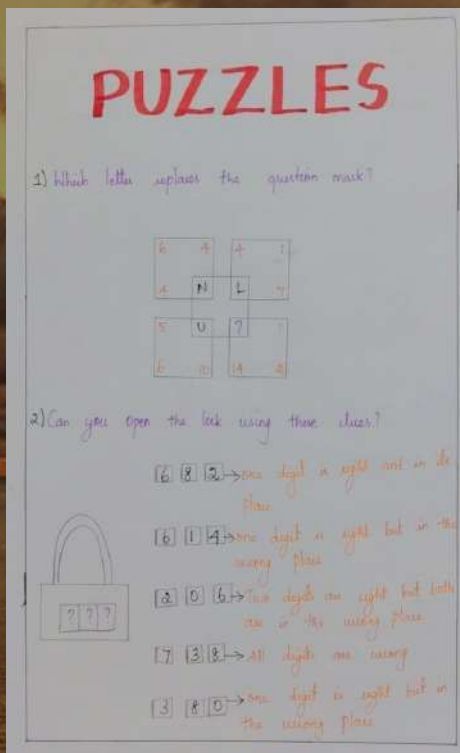 PUZZLES
1) Which letter replaces the question mark?
6 4 4 1
4 N L 7
5 U ? 1
6 10 14 2
2) Can you open the lock using these clues?
6 8 2 → one digit is right and in its
place
6 1 4 → one digit is right but in the
wrong place
2 0 6 → Two digits are right but both
are in the wrong place
? ? ?
7 3 8 → All digits are wrong
3 8 0 → one digit is right but in
the wrong place